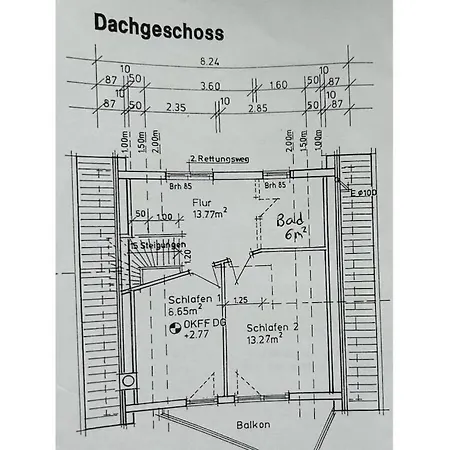 Dachgeschoss
8.24
10
10
87
50
3.60
1.60
50
87
10
10
10
87
50
2.35
2.85
50
87
1.00m
1.50m
2.00m
2.00m
1.50m
1.00m
2. Rettungsweg
Brh 85
Brh 85
E ø100
Flur
13.77m²
Bad
6m²
50
1.00
15 Steigungen
1.20
Schlafen 1
8.65m²
1.25
OKFF DG
+2.77
Schlafen 2
13.27m²
Balkon